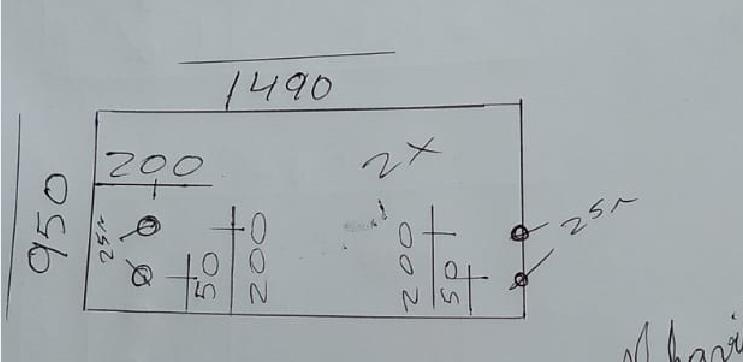 1490
950
200
2x
25n
50
200
200
50
25n